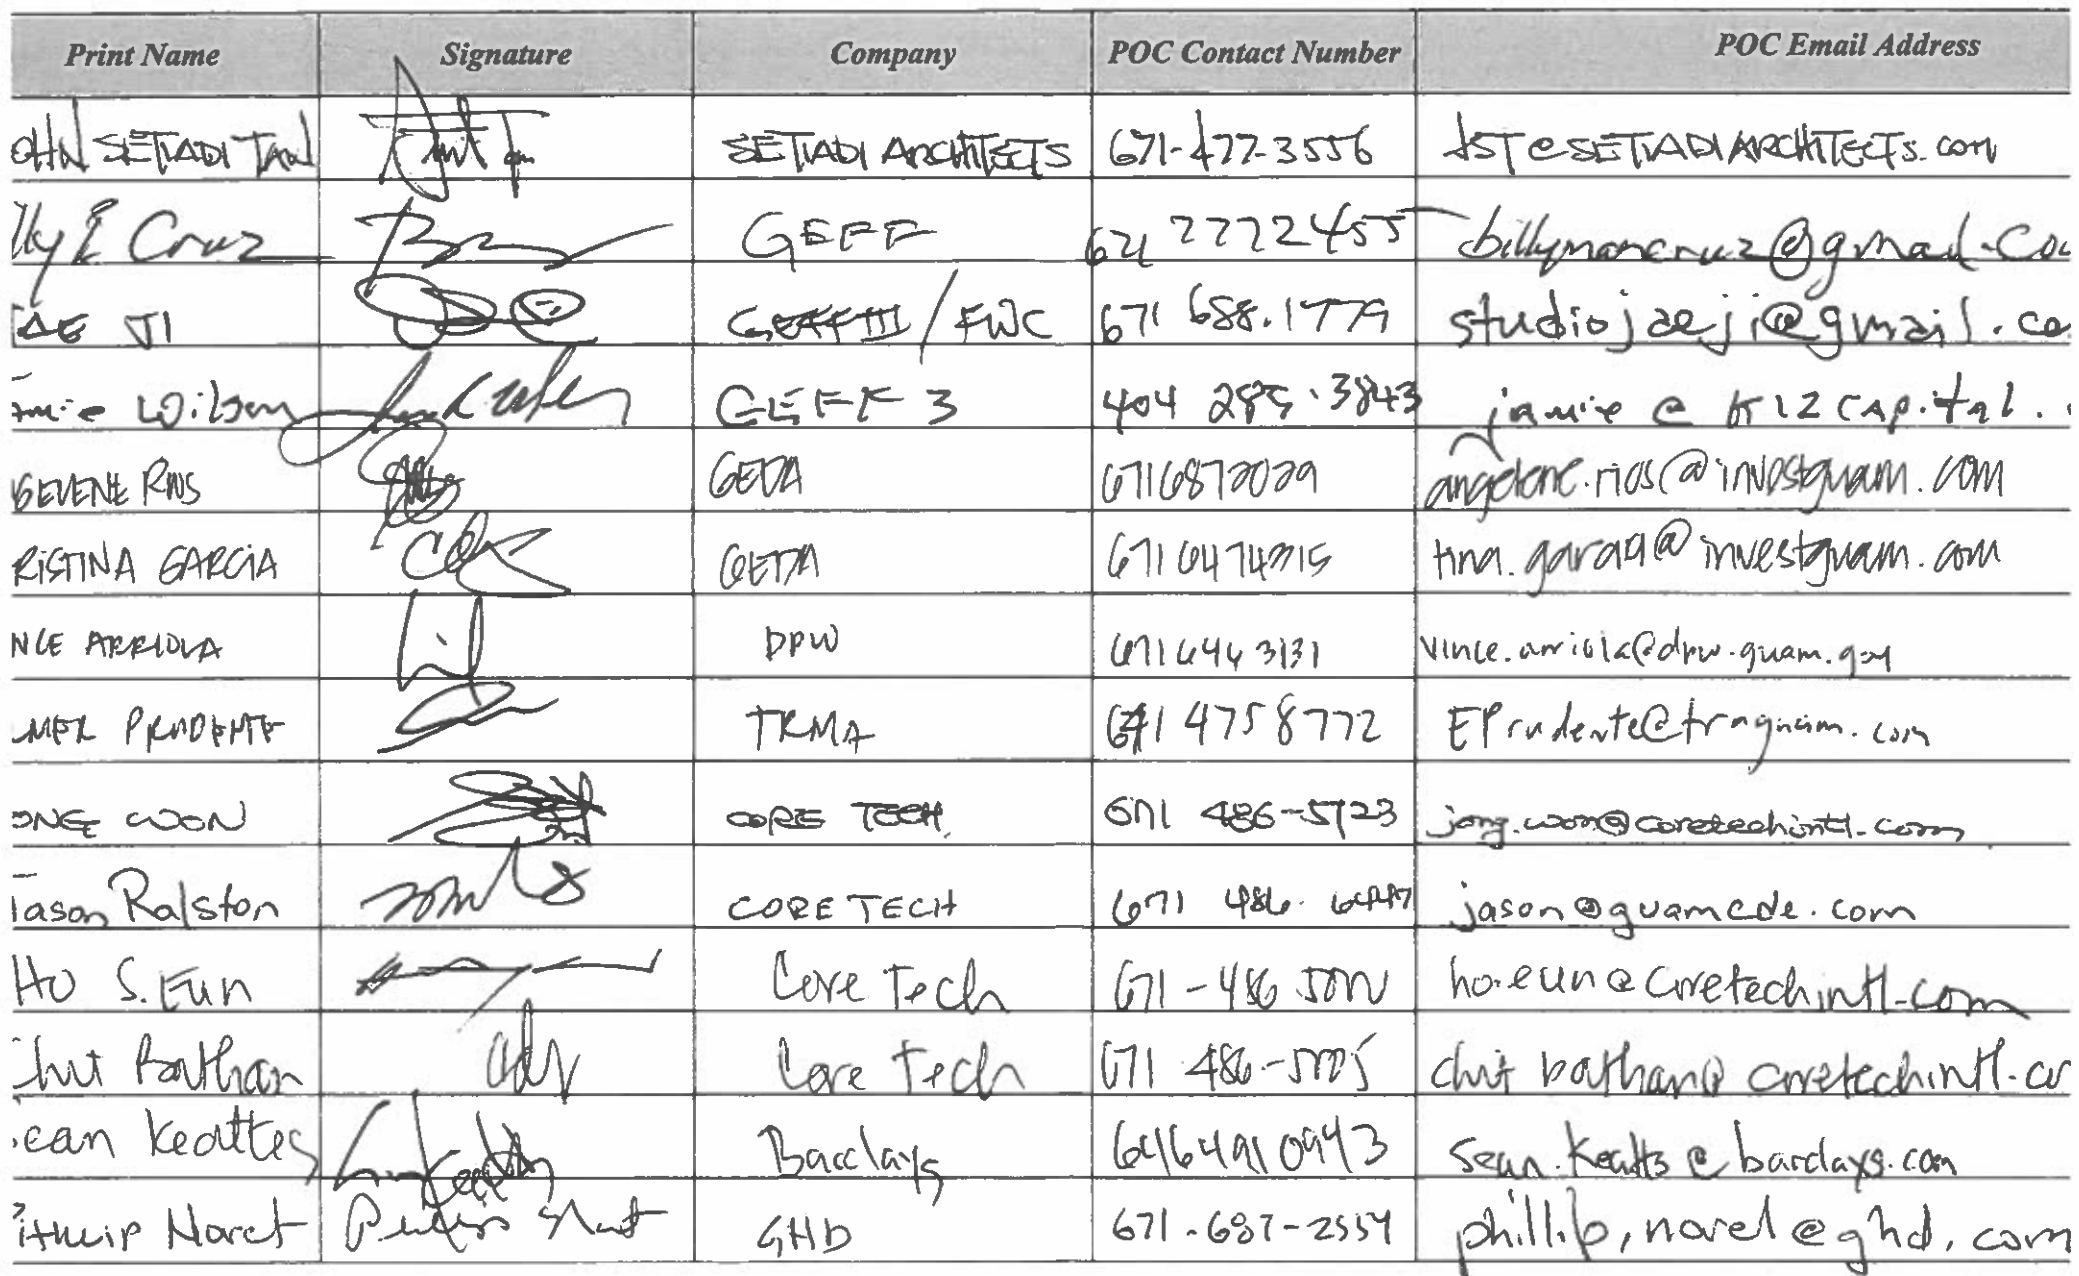 Print Name Signature Company POC Contact Number POC Email Address
OHN SETIADI TAN SETIADI ARCHITECTS 671-477-3556 JST@SETIADIARCHITECTS.com
lly E Cruz GEFF 671 7772455 billymancruz@gmail.co
JAE JI GEFF III / FWC 671 688.1779 studiojaeji@gmail.co
amie Wilson GEFF 3 404 285.3843 jamie@K12capital.
GELENE RIOS GEDA 6716872029 angelene.rios@investguam.com
RISTINA GARCIA GEDA 6716474315 tina.garcia@investguam.com
NCE ARRIOLA DPW 6716463131 vince.arriola@dpw.guam.gov
LMER PRUDENTE TRMA 671 4758772 EPrudente@traguam.com
ONG WON CORE TECH 671 486-5723 jong.won@coretechintl.com
Jason Ralston CORE TECH 671 486. jason@guamcde.com
HO S. Eun Core Tech 671-486 ho.eun@coretechintl.com
Chit Bathan Core Tech 671 486- chit bathan@coretechintl.co
ean Keattes Barclays 6464910943 sean.keatts@barclays.com
Phillip Noret GHD 671-687-2554 phillip.norel@ghd.com